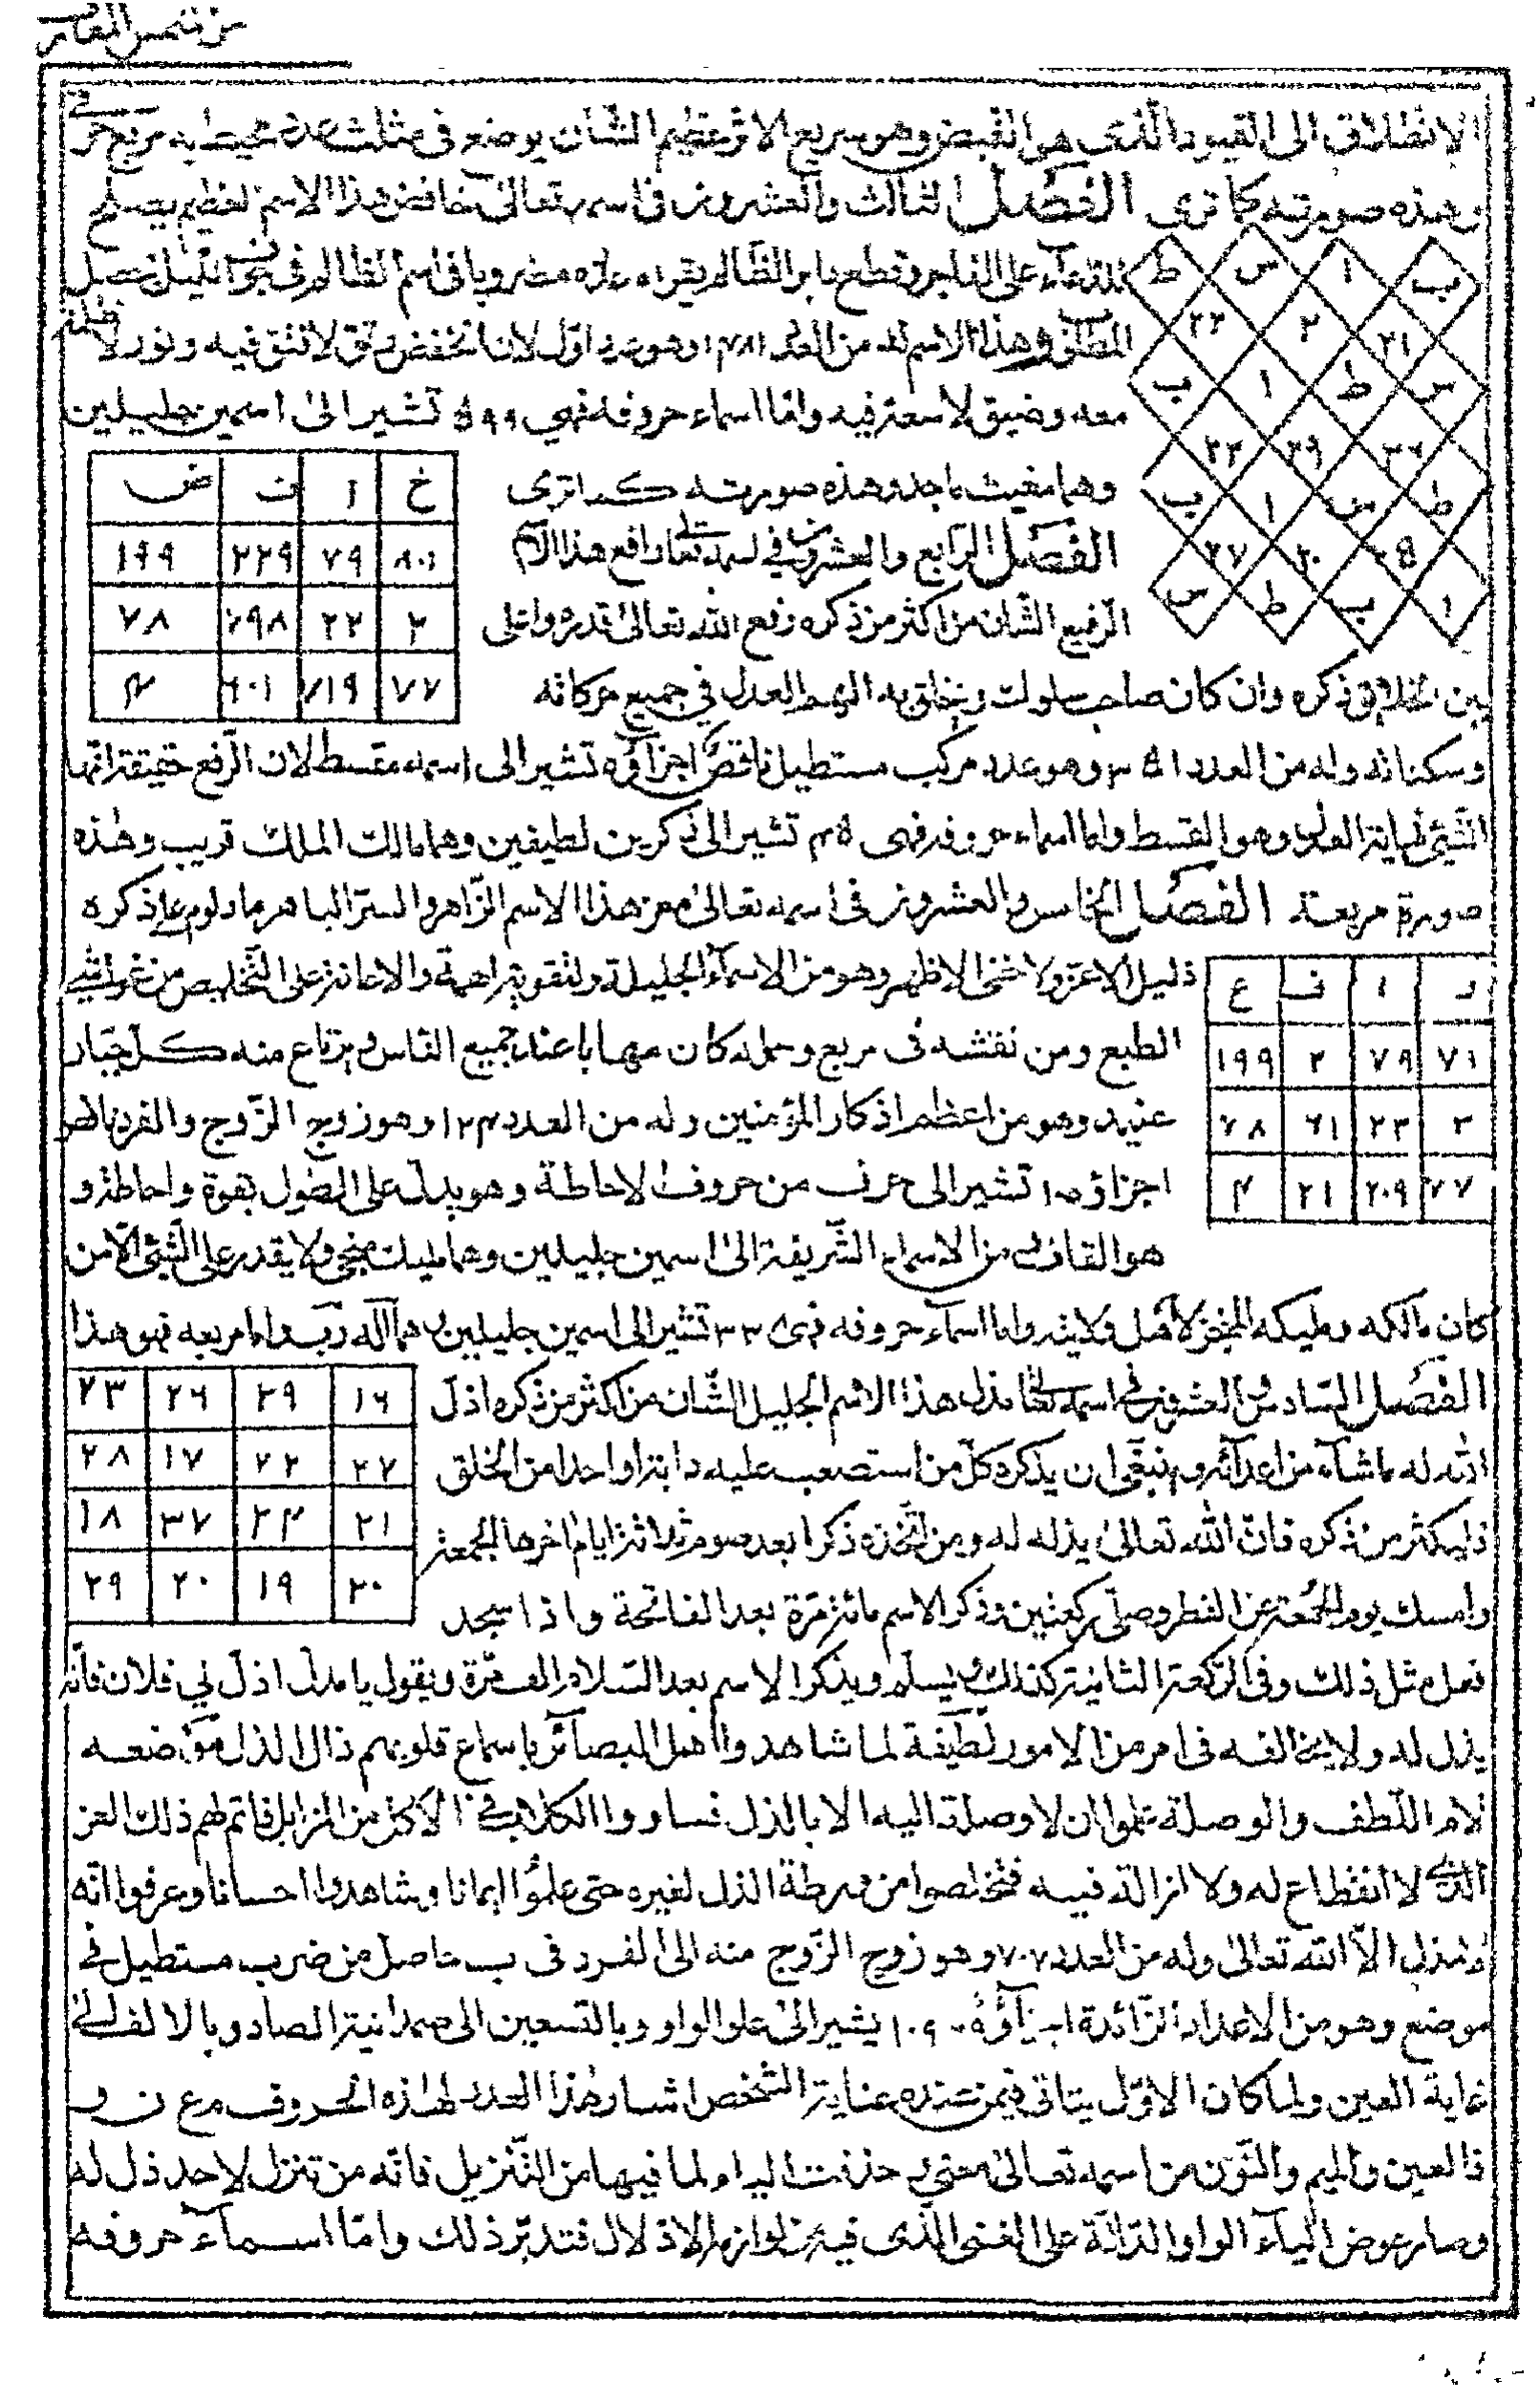 الانطلاق الى القيود الذى هو القبض وهو سريع الاثر عظيم الشان يوضع فى مثلث عددى محيط به مربع حرفى
وهذه صورته كما ترى الفصل الثالث والعشرون فى اسمه تعالى خافض هذا الاسم العظيم يصلح
ب ا س ط
للدعاء على الفاجر وقطع دابر الظالم يقراء عدده مضروبا فى اسم الظالم فى جوف الليل يحصل
٢١ ٢ ٢٢
المطلوب وهذا الاسم له من العدد ١٤٨١ وهو عدد اول لان انخفض رتق لا فتق فيه ونور لا ظلمة
س ط ا ب
معه وضيق لا سعة فيه واما اسماء حروفه فهي تشير الى اسمين جليلين
ط س ا ب
ا ب ط س
وهما مغيث ماجد وهذه صورته كما ترى
خ ا ف ض
٨٠١ ٧٩ ٢٢٩ ١٩٩
٢ ٢٢ ٢٩٨ ٧٨
٧٧ ٧١٩ ٦٠١ ٤
الفصل الرابع والعشرون في اسمه تعالى رافع هذا الاسم
الرفيع الشان من اكثر من ذكره رفع الله تعالى قدره واعلى
بين الخلايق ذكره وان كان صاحب سلوك وتخلق به الهم العدل في جميع حركاته
وسكناته وله من العدد ٣٥١ وهو عدد مركب مستطيل ناقص اجزاؤه تشير الى اسمه مقسط لان الرفع حقيقة انها
الشئ نهاية العلو وهو القسط واما اسماء حروفه فهى تشير الى ذكرين لطيفين وهما مالك الملك قريب وهذه
صورة مربعه الفصل الخامس والعشرون فى اسمه تعالى معز هذا الاسم الزاهر والستر الباهر ما داوم على ذكره
ر ا ف ع
ذليل الا عز ولا خفى الا ظهر وهو من الاسماء الجليلة ولتقوية الهمة والاعانة على التخليص من غواشى
٧١ ٧٩ ٢ ١٩٩
الطبع ومن نقشه فى مربع وحمله كان مهابا عند جميع الناس ويرتاع منه كل جبار
٣ ٢٣ ٦١ ٧٨
عنيد وهو من اعظم اذكار المؤمنين وله من العدد ١٢٤ وهو زوج الزوج والفرد ناقص
٧٧ ٢٠٩ ٢١ ٤
اجزاؤه تشير الى حرف من حروف الاحاطة وهو يدل على الطول بقوة واحاطة و
هو القاف من الاسماء الشريفة الى اسمين جليلين وهما مليك منجى ولا يقدر على الشئ الا من
كان مالكه ومليكه المنجز لاهل ولايته واما اسماء حروفه فهى ٣٣٨ تشير الى اسمين جليلين هما اله رب واما مربعه فهو هذا
١٦ ٢٩ ٢٦ ٢٣
٢٧ ٢٢ ١٧ ٢٨
٢١ ٢٤ ٣٧ ١٨
٣٠ ١٩ ٢٠ ٢٩
الفصل السادس والعشرون فى اسمه تعالى مذل هذا الاسم الجليل الشان من اكثر من ذكره اذل
الله له ما شاء من اعدائه وينبغى ان يذكره كل من استصعب عليه دابة او احدا من الخلق
فليكثر من ذكره فان الله تعالى يذله له ومن اتخذه ذكرا بعد صوم ثلاثة ايام اخرها الجمعة
وامسك يوم الجمعة عن الفطر وصلى ركعتين وذكر الاسم مائة مرة بعد الفاتحة واذا سجد
فعل مثل ذلك وفى الركعة الثانية كذلك ويسلم ويذكر الاسم بعد السلام الف مرة ويقول يا مذل اذل لي فلان فانه
يذل له ولا يخالفه فى امر من الامور لطيفة لما شاهدوا اهل البصائر باسماع قلوبهم ذال الذل موضعه
لام اللطف والوصلة علموا ان لا وصلة اليه الا بالذل فساووا الكلاب فى الاكل من المزابل فاتم لهم ذلك العز
الذى لا انقطاع له ولا ازالة فيه فتخلصوا من ورطة الذل لغيره حتى علموا ايمانا وشاهدوا احسانا وعرفوا انه
لا مذل الا الله تعالى وله من العدد ٧٠٧ وهو زوج الزوج منه الى الفرد فى ب حاصل من ضرب مستطيل فى
موضع وهو من الاعداد الزائدة اجزاؤه ١٠٩٠ يشير الى علو الواو وبالتسعين الى صمدانية الصاد وبالالف الى
غاية العين ولما كان الاول يتاتى فيمن عنده عناية الشخص اشار هذا العدد لهذه الحروف مع ن و
فالعين والميم والنون من اسمه تعالى معنى حذفت الياء لما فيها من التنزيل فانه من تنزل لاحد ذل له
وصار عوض الياء الواو الدالة على الغنى الذى فيه من لوازم الاذلال فتدبر ذلك واما اسماء حروفه